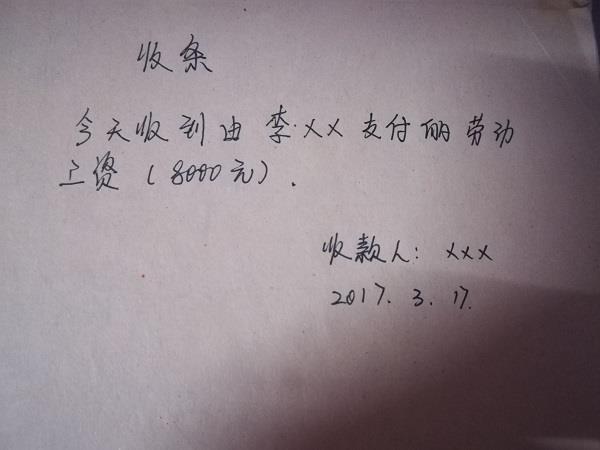 收条
今天收到由李·XX支付的劳动
工资(8000元).
收款人: xxx
2017.3.17.